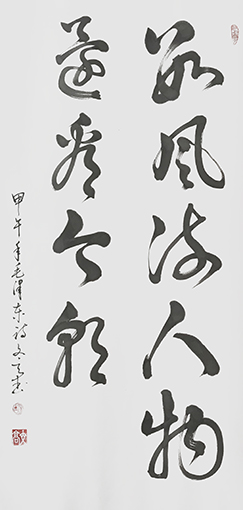 数风流人物
还看今朝
甲午年毛泽东诗句